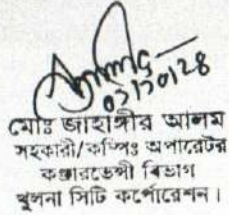 ০১/১০/২৪
মোঃ জাহাঙ্গীর আলম
সহকারী/কম্পিঃ অপারেটর
কঞ্জারভেন্সী বিভাগ
খুলনা সিটি কর্পোরেশন।